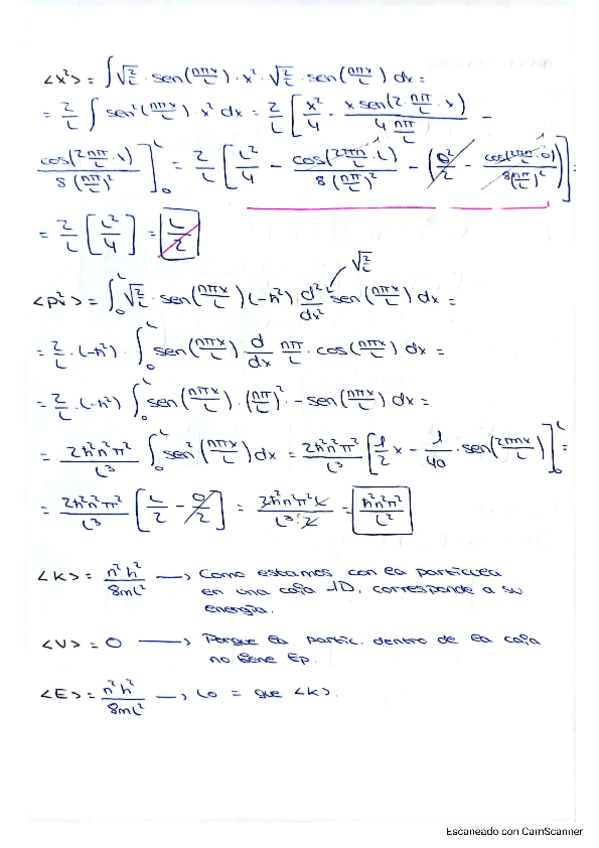 <x²> = ∫ √(2/L) · sen(nπx/L) · x² · √(2/L) · sen(nπx/L) dx =
= 2/L ∫ sen²(nπx/L) · x² dx = 2/L [ x²/4 · x sen(2·nπ/L · x) / 4 nπ/L −
cos(2nπ/L · x) / 8(nπ/L)² ]₀ᴸ = 2/L [ L²/4 − cos(2nπ/L · L) / 8(nπ/L)² − ( 0²/2 − cos(2nπ/L · 0) / 8(nπ/L)² ) ] =
= 2/L [ L²/4 ] = L/2
√(2/L)
<p²> = ∫₀ᴸ √(2/L) · sen(nπx/L) (−ħ²) · d²/dx² sen(nπx/L) dx =
= 2/L · (−ħ²) · ∫₀ᴸ sen(nπx/L) · d/dx nπ/L · cos(nπx/L) dx =
= 2/L · (−ħ²) ∫₀ᴸ sen(nπx/L) · (nπ/L)² · −sen(nπx/L) dx =
= 2ħ²n²π²/L³ ∫₀ᴸ sen²(nπx/L) dx = 2ħ²n²π²/L³ [ 1/2 x − 1/4a · sen(2πnx/L) ]₀ᴸ =
= 2ħ²n²π²/L³ [ L/2 − 0/2 ] = 2ħ²n²π²L / L³·2 = ħ²n²π²/L²
<K> = n²h²/8mL² → Como estamos con la partícula
en una caja 1D, corresponde a su
energía.
<V> = 0 → Porque la partic. dentro de la caja
no tiene Ep.
<E> = n²h²/8mL² → Lo = que <K>.
Escaneado con CamScanner